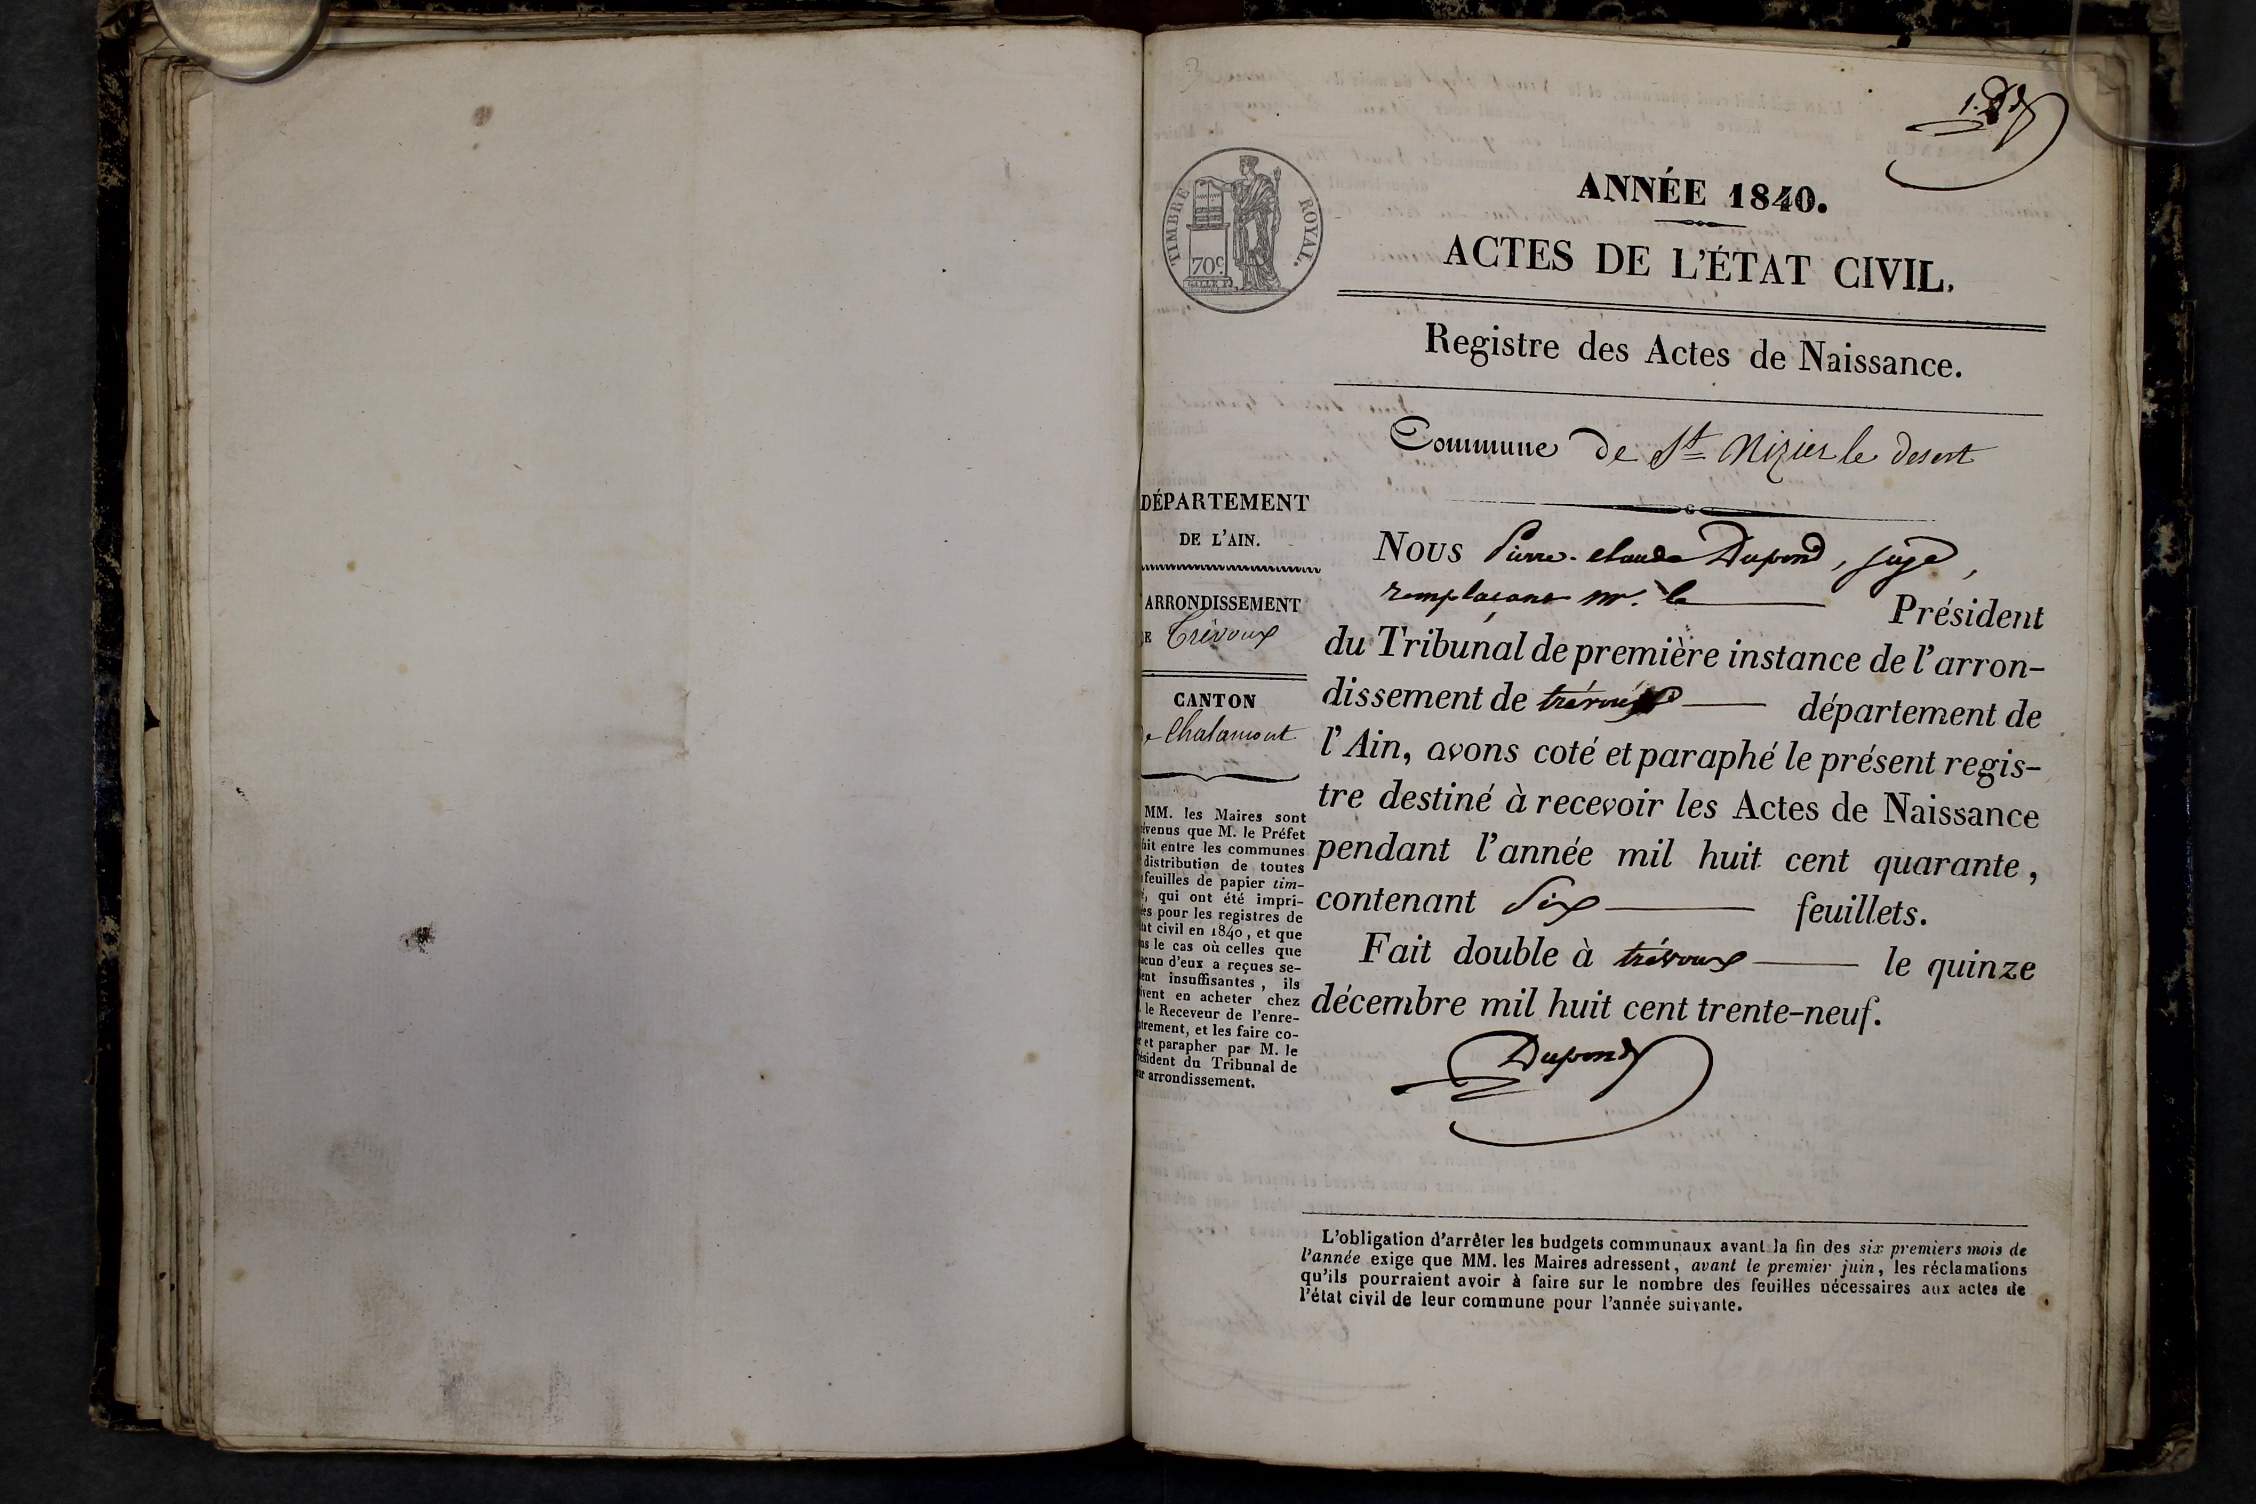 1. Dd
TIMBRE ROYAL.
70c.
ANNÉE 1840.
ACTES DE L'ÉTAT CIVIL.
Registre des Actes de Naissance.
Commune de St Nizier le desert
DÉPARTEMENT
DE L'AIN.
ARRONDISSEMENT
E Trévoux
CANTON
de Chalamont
MM. les Maires sont
évenus que M. le Préfet
ait entre les communes
distribution de toutes
feuilles de papier tim-
é, qui ont été impri-
ées pour les registres de
tat civil en 1840, et que
ns le cas où celles que
acun d'eux a reçues se-
ent insuffisantes, ils
ivent en acheter chez
le Receveur de l'enre-
trement, et les faire co-
r et parapher par M. le
résident du Tribunal de
ur arrondissement.
Nous Pierre-claude Dupond, juge,
remplaçant mr. le Président
du Tribunal de première instance de l'arron-
dissement de trévoux département de
l'Ain, avons coté et paraphé le présent regis-
tre destiné à recevoir les Actes de Naissance
pendant l'année mil huit cent quarante,
contenant Six feuillets.
Fait double à trévoux le quinze
décembre mil huit cent trente-neuf.
Dupond
L'obligation d'arrêter les budgets communaux avant la fin des six premiers mois de
l'année exige que MM. les Maires adressent, avant le premier juin, les réclamations
qu'ils pourraient avoir à faire sur le nombre des feuilles nécessaires aux actes de
l'état civil de leur commune pour l'année suivante.